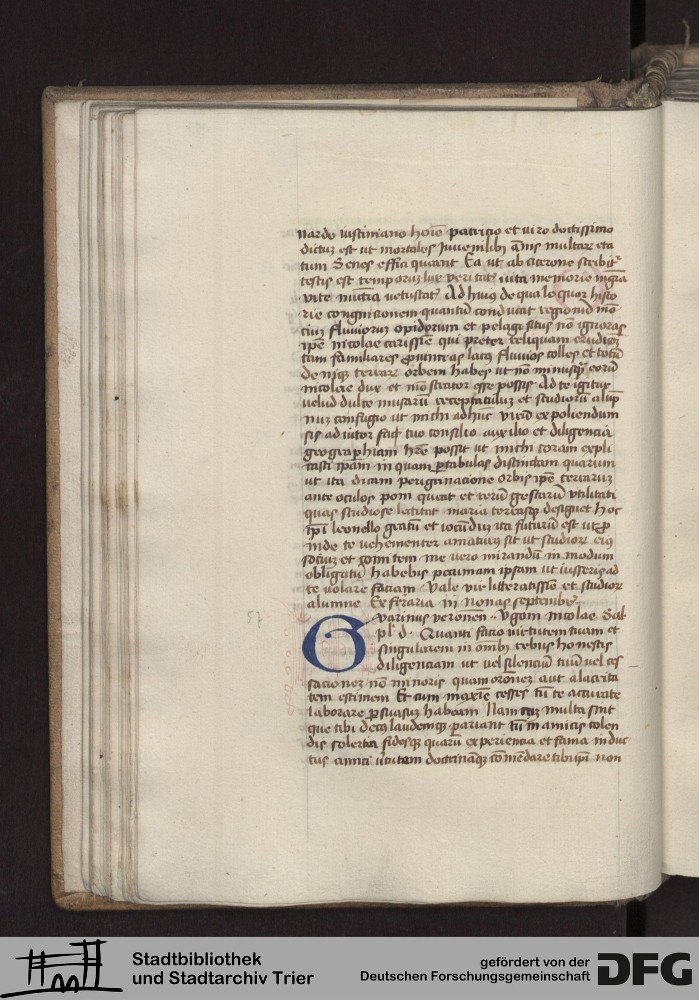 nardo iustiniano hoīe patricio et viro doctissimo
dictū est ut mortales iuvenilibꝫ añis multare eta
tum Senes effici queant Ea ut ab cicerone scribitᷣ
testis est temporum lux veritatꝭ vita memorie mgrā
vite nuncia vetustatꝭ Ad huiꝰ de qua loquor histo
rie congnicionem quantū conducat regionū mō
cium fluviorum opidorum et pelagi situs nō ignoras
ipē nicolae carissiē qui preter reliquam erudicōꝫ
tam familiares ꝓvincias lacꝰ fluvios colles et totū
deniqꝫ terrare orbem habes ut nō minusqꝫ eorū
nicolae dux et mōstrator esse possis Ad te igitur
velud dulce musarū receptaculuꝫ et studiorū alūp
nuꝫ confugio ut michi adhuc expoliendum
sis adiutor tuo consilio auxilio et diligencia
geographiam hr̄e possit ut michi coram expli
casti ipam in quam ꝑ tabulas distinctam quarum
ut ita dicam peregrinacione orbis ipē terrarum
ante oculos poni queat et rerū gestarū utilitati
quas studiose lectitat maria terrasqꝫ designet hoc
leonello gratū et iocūdū ita futurū est ut
inde te vehementer amaturꝰ sit ut studiorꝫ eiꝰ
sociuꝫ et comitem me vero mirandū in modum
obligatū habebis pecuniam ipsam ut iusseris ad
te volare faciam Vale vir litteratissiē et studiorꝫ
alumne Ex feraria iii Nonas septembrꝭ
Gvarinus veronen̄ Vgoni nicolae Sal
pl' d Quanti facio virtutem tuam et
singularem in omībꝫ rebus honestis
diligenciam ut vel silenciū tuū vel ces
sacionez nō minoris quam oronez aut alacrita
tem estimem Et cum maxīe cesses tū te accurate
laborare ꝑsuasuꝫ habeam Nam cuꝫ multa sint
que tibi decꝰ laudemqꝫ pariant tū in amicis colen
dis solercia fidesqꝫ quarū experiencia et fama induc
tus amici v̄tutem doctrināqꝫ cōmēdare tibi non
57
Stadtbibliothek
und Stadtarchiv Trier
gefördert von der
Deutschen Forschungsgemeinschaft
DFG